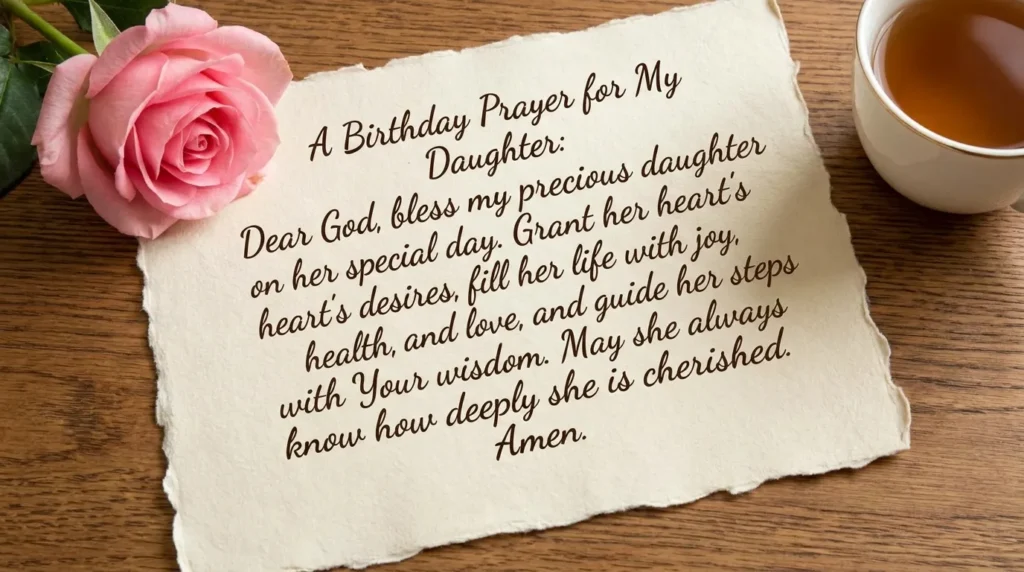 A Birthday Prayer for My
Daughter:
Dear God, bless my precious daughter
on her special day. Grant her heart's
heart's desires, fill her life with joy,
health, and love, and guide her steps
with Your wisdom. May she always
know how deeply she is cherished.
Amen.